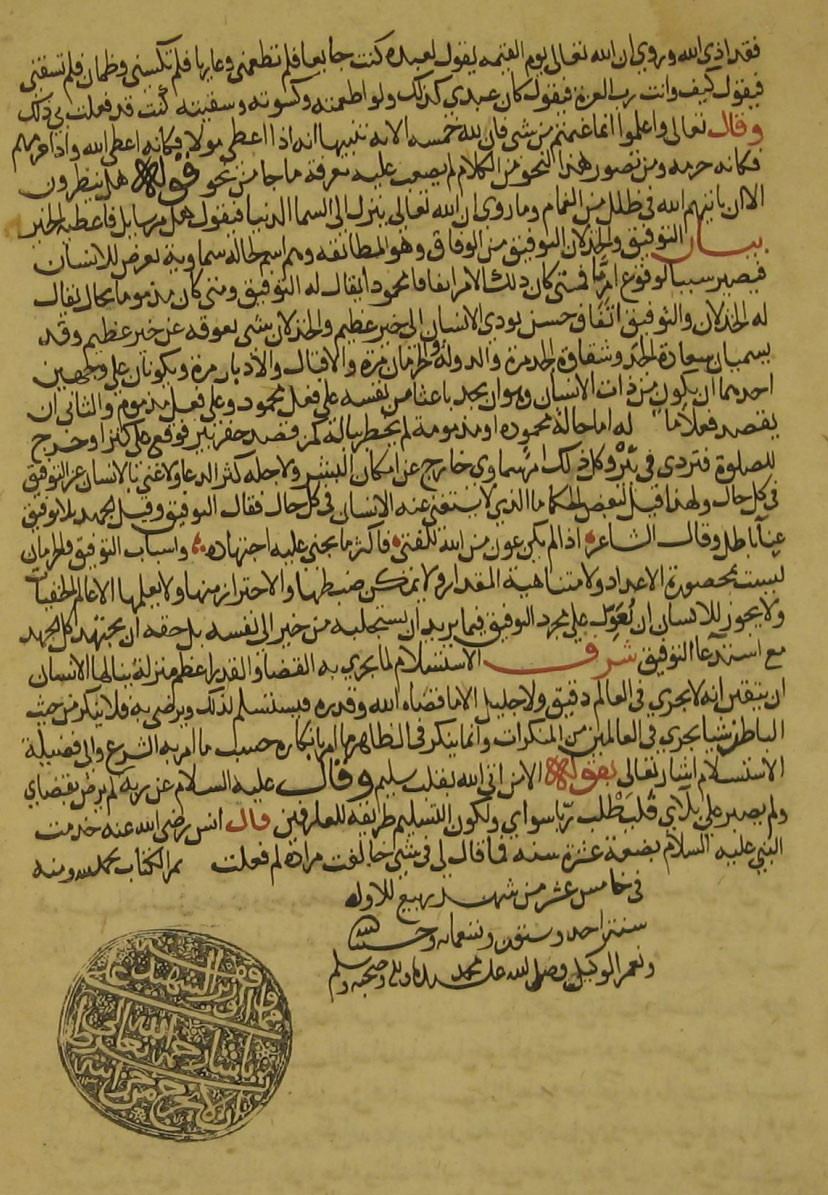 فقد اذي الله وروي ان الله تعالى يوم القيمه يقول لعبده كنت جايعا فلم تطعمني وعاريا فلم تكسني وظمان فلم تسقني
فيقول كيف وانت رب العزه فيقول كان عبدي كذلك ولو اطعمته وكسوته وسقيته كنت قد فعلت بي ذلك
وقال تعالى واعلموا انما غنمتم من شي فان لله خمسه الاية تنبيها انه اذا اعطي مولا فكانه اعطى الله واذا حرمهم
فكانه حرمه ومن تصور هذا النحو من الكلام لم يصعب عليه معرفة ما جا من نحو قوله هل ينظرون
الا ان ياتيهم الله في ظلل من الغمام وما روي ان الله تعالى ينزل الى السما الدنيا فيقول هل من سايل فاعطيه الخبر
بيان التوفيق والخذلان التوفيق من الوفاق وهو المطابقه وهم اسم لحالة سماوية تعرض للانسان
فيصير سببا لوقوع امر ما فمتى كان ذلك الامر اتفاقا محمودا يقال له التوفيق ومتى كان مذموما بحال يقال
له الخذلان والتوفيق اتفاق حسن يودي الانسان الى خير عظيم والخذلان شي يعوقه عن خير عظيم وقد
يسميان سعادة الجد وشقاوة الجد مرة والدولة والحرمان مرة والاقبال والادبار مرة ويكونان على وجهين
احدهما ان يكون من ذات الانسان وهو ان يجد باعثا من نفسه على فعل محمود وعلى فعل مذموم والثاني ان
يقصد فعلا ما له اما حالة محموده او مذمومة لم يخطر بباله كمن قصد حفر بير فوقع على كنز او خرج
للصلوة فتردى في بئر وكل ذلك امر سماوي خارج عن امكان البشر ولاجله كثر الدعا ولا غنى بالانسان عن التوفيق
في كل حال ولهذا قيل لبعض الحكما ما الذي لا يستغني عنه الانسان في كل حال فقال التوفيق وقيل الجهد بلا توفيق
عنا باطل وقال الشاعر اذا لم يكن عون من الله للفتى فاكثر ما يجني عليه اجتهاده واسباب التوفيق والحرمان
ليست بمحصورة الاعداد ولا متناهية المقدار ولا يمكن ضبطها والاحتراز منها ولا يعلمها الا عالم الخفيات
ولا يجوز للانسان ان يعول على مجرد التوفيق فيما يريد ان يستجلبه من خير الى نفسه بل حقه ان يجتهد كل الجهد
مع استدعا التوفيق شرف الاستسلام لما يجري به القضا والقدر اعظم منزلة ينالها الانسان
ان يتيقن انه لا يجري في العالم دقيق ولا جليل الا ما قضاه الله وقدره فيستسلم لذلك ويرضى به فلا ينكر من حيث
الباطن شيا يجري في العالمين من المنكرات وانما ينكر في الظاهر ما امر بانكاره حسب ما امر به الشرع والى فضيلة
الاستسلام اشار تعالى بقوله الا من اتى الله بقلب سليم وقال عليه السلام عن ربه لم يرض بقضاي
ولم يصبر على بلاي فليطلب ربا سواي ولكون التسليم طريقه للعارفين قال انس رضي الله عنه خدمت
النبي عليه السلام بضعة عشرة سنه فما قال لي في شي خالفت مراده لم فعلت تم الكتاب بحمد الله ومنه
في خامس عشر من شهر ربيع للاوله
سنة احد وستون وتسعمايه وحسبنا الله
ونعم الوكيل وصلى الله على محمد واله وصحبه وسلم
وقف
الشهيد